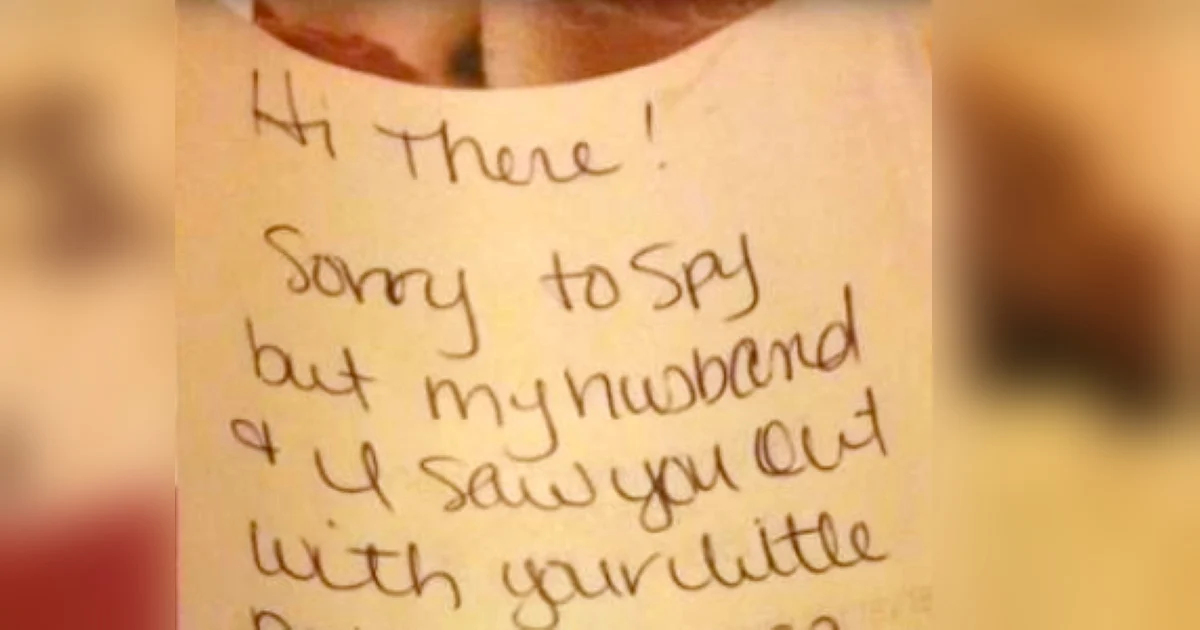 Hi There!
Sorry to Spy
but my husband
& I saw you out
with your little